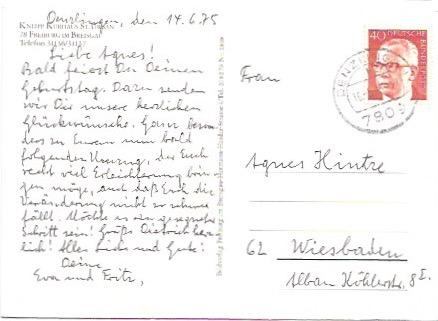 Denzlingen, den 14.6.75
KNEIPP-KURHAUS ST. URBAN
78 FREIBURG IM BREISGAU
Telefon
Liebe Agnes!
Bald feierst Du Deinen
Geburtstag. Dazu senden
wir Dir unsere herzlichen
Glückwünsche. Ganz beson
ders zu Eurem nun bald
folgenden Umzug, der Euch
recht viel Erleichterung brin
gen möge, auch daß Euch die
Veränderung nicht so schwer
fällt. Möchte es ein gesegneter
Schritt sein! Grüße Dietrich herz
lich! Alles Liebe und Gute!
Deine
Eva und Fritz,
40
DEUTSCHE
BUNDESPOST
DENZLINGEN
7809
Frau
Agnes Hintze
62 Wiesbaden
Alban Köhlerstr. 8 I